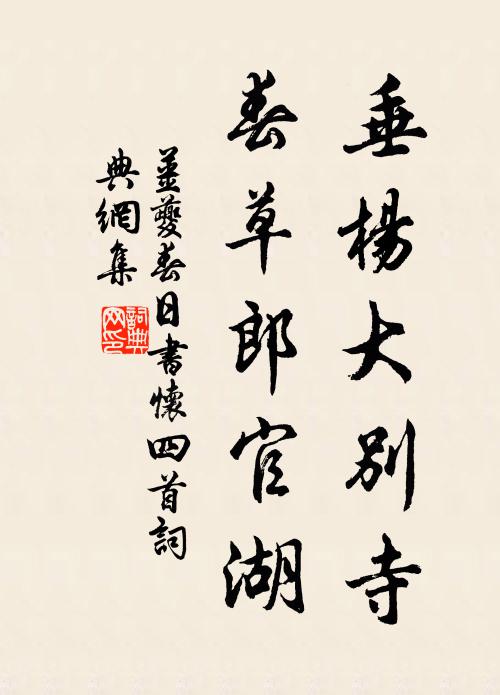 垂楊大別寺
春草郎官湖
姜夔春日書懷四首詞
典網集
詞典
网印